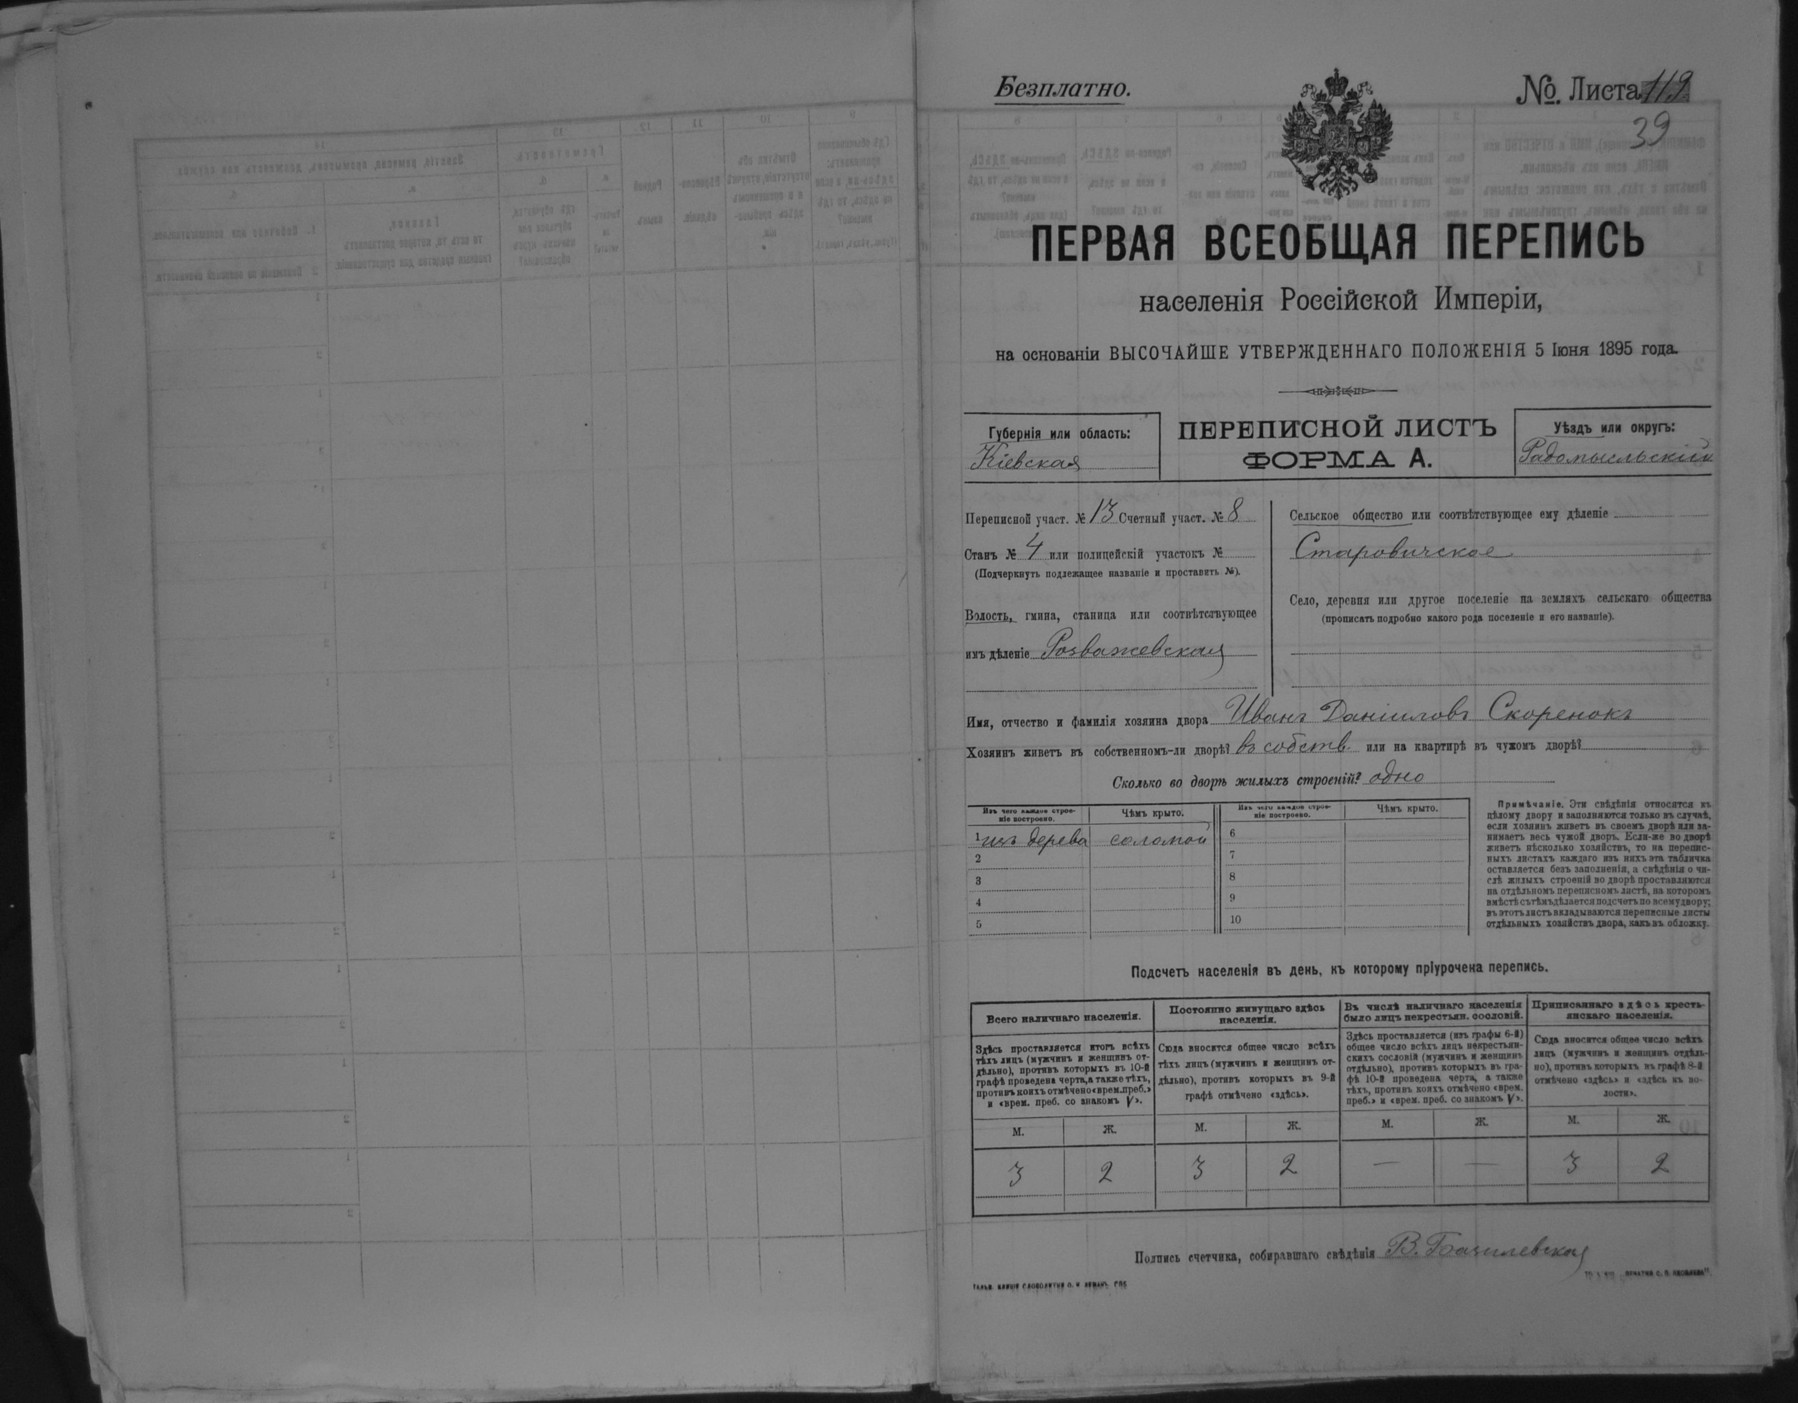 Безплатно.
№. Листа 119
39
ПЕРВАЯ ВСЕОБЩАЯ ПЕРЕПИСЬ
населенія Россійской Имперіи,
на основаніи ВЫСОЧАЙШЕ УТВЕРЖДЕННАГО ПОЛОЖЕНІЯ 5 Іюня 1895 года.
Губернія или область:
Кіевская
ПЕРЕПИСНОЙ ЛИСТЪ
ФОРМА А.
Уѣздъ или округъ:
Радомысльскій
Переписной участ. № 13 Счетный участ. № 8
Станъ № 4 или полицейскій участокъ №
(Подчеркнуть подлежащее названіе и проставить №).
Волость, гмина, станица или соотвѣтствующее
имъ дѣленіе Розважевская
Сельское общество или соотвѣтствующее ему дѣленіе
Старовичское
Село, деревня или другое поселеніе на земляхъ сельскаго общества
(прописать подробно какого рода поселеніе и его названіе).
Имя, отчество и фамилія хозяина двора Иванъ Даніиловъ Скоренокъ
Хозяинъ живетъ въ собственномъ-ли дворѣ? въ собств. или на квартирѣ въ чужомъ дворѣ?
Сколько во дворѣ жилыхъ строеній? одно
Изъ чего каждое строе-
ніе построено.
Чѣмъ крыто.
Изъ чего каждое строе-
ніе построено.
Чѣмъ крыто.
1 изъ дерева соломой
2
3
4
5
6
7
8
9
10
Примѣчаніе. Эти свѣдѣнія относятся къ
цѣлому двору и заполняются только въ случаѣ,
если хозяинъ живетъ въ своемъ дворѣ или за-
нимаетъ весь чужой дворъ. Если-же во дворѣ
живетъ нѣсколько хозяйствъ, то на перепис-
ныхъ листахъ каждаго изъ нихъ эта табличка
оставляется безъ заполненія, а свѣдѣнія о чи-
слѣ жилыхъ строеній во дворѣ проставляются
на отдѣльномъ переписномъ листѣ, на которомъ
вмѣстѣ съ тѣмъ дѣлается подсчетъ по всему двору;
въ этотъ листъ вкладываются переписные листы
отдѣльныхъ хозяйствъ двора, какъ въ обложку.
Подсчетъ населенія въ день, къ которому пріурочена перепись.
Всего наличнаго населенія.
Здѣсь проставляется итогъ всѣхъ
тѣхъ лицъ (мужчинъ и женщинъ от-
дѣльно), противъ которыхъ въ 10-й
графѣ проведена черта, а также тѣхъ,
противъ коихъ отмѣчено «врем. преб.»
и «врем. преб. со знакомъ V».
Постоянно живущаго здѣсь
населенія.
Сюда вносится общее число всѣхъ
тѣхъ лицъ (мужчинъ и женщинъ от-
дѣльно), противъ которыхъ въ 9-й
графѣ отмѣчено «здѣсь».
Въ числѣ наличнаго населенія
было лицъ некрестьян. сословій.
Здѣсь проставляется (изъ графы 6-й)
общее число всѣхъ лицъ некрестьян-
скихъ сословій (мужчинъ и женщинъ
отдѣльно), противъ которыхъ въ гра-
фѣ 10-й проведена черта, а также
тѣхъ, противъ коихъ отмѣчено «врем.
преб.» и «врем. преб. со знакомъ V».
Приписаннаго здѣсь кресть-
янскаго населенія.
Сюда вносится общее число всѣхъ
лицъ (мужчинъ и женщинъ отдѣль-
но), противъ которыхъ въ графѣ 8-й
отмѣчено «здѣсь» и «здѣсь къ во-
лости».
М. Ж. М. Ж. М. Ж. М. Ж.
3 2 3 2 — — 3 2
Подпись счетчика, собиравшаго свѣдѣнія